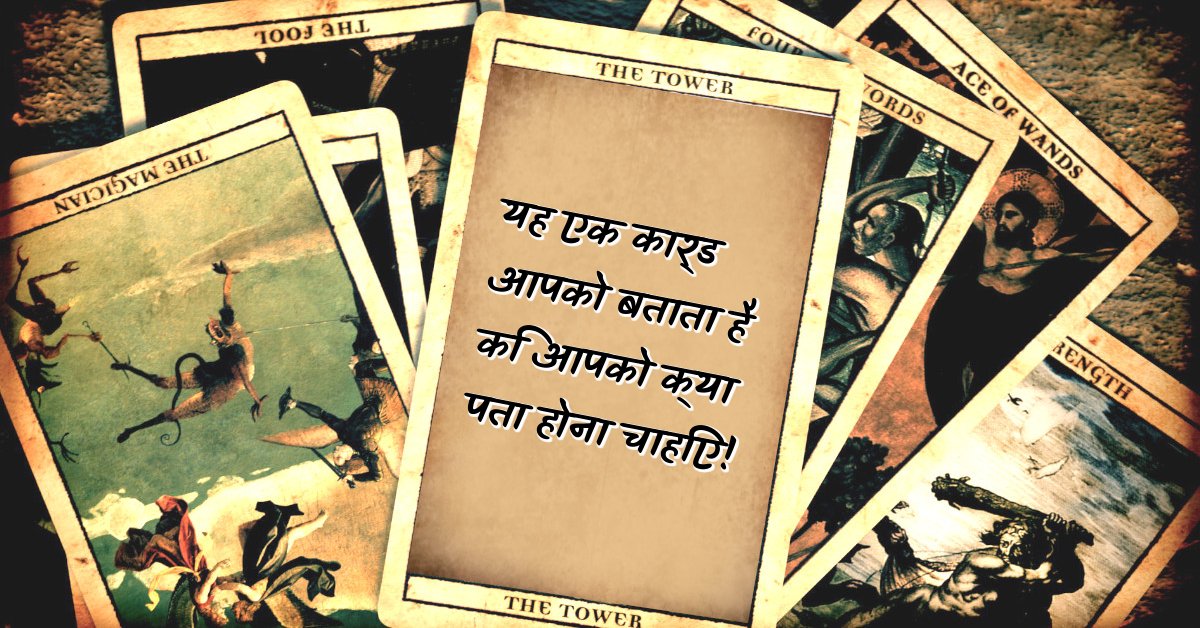 THE FOOL
THE MAGICIAN
THE TOWER
यह एक कार्ड
आपको बताता है
कि आपको क्या
पता होना चाहिए!
THE TOWER
FOUR
ACE OF WANDS